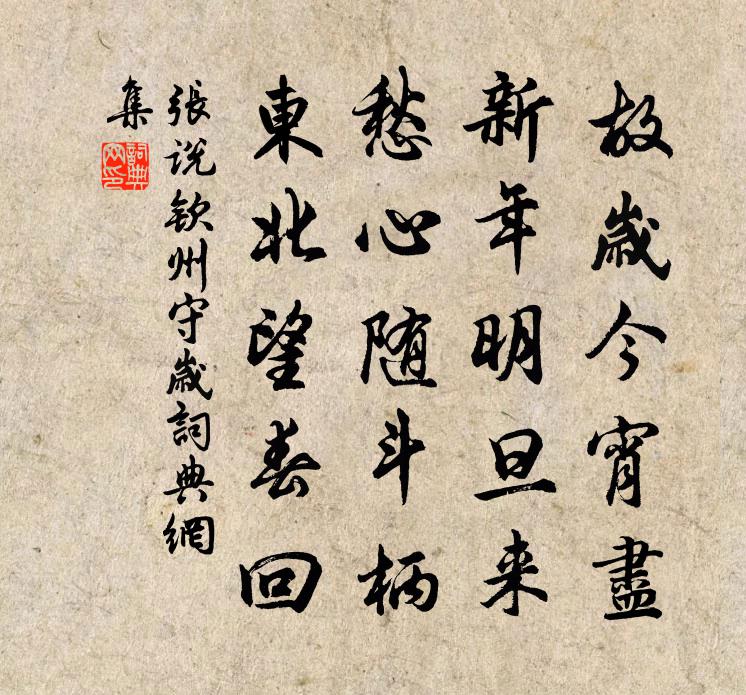 故歲今宵盡
新年明旦来
愁心随斗柄
東北望春回
張說欽州守歲詞典網
集
詞典網印